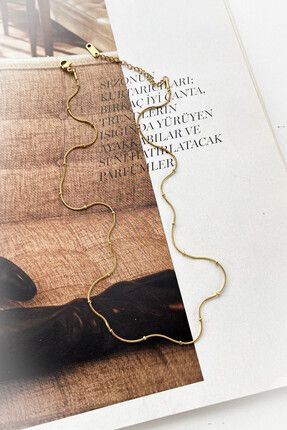 SEZONUN
KURTARICILARI:
BİRKAÇ İYİ ÇANTA,
TRENDLERİN
IŞIĞINDA YÜRÜYEN
AYAKKABILAR VE
SENİ HATIRLATACAK
PARFÜMLER